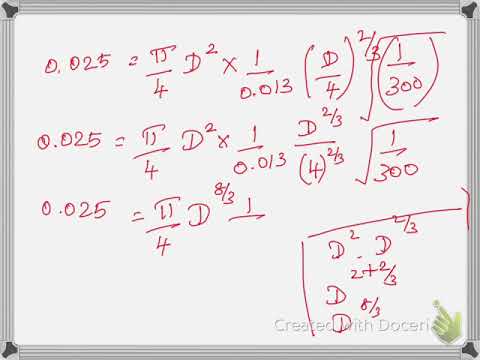 0.025 = π/4 D² × 1/0.013 (D/4)^2/3 √(1/300)
0.025 = π/4 D² × 1/0.013 D^2/3/(4)^2/3 √1/300
0.025 = π/4 D^8/3 1
D² · D^2/3
D^2+2/3
D^8/3
Created with Doceri